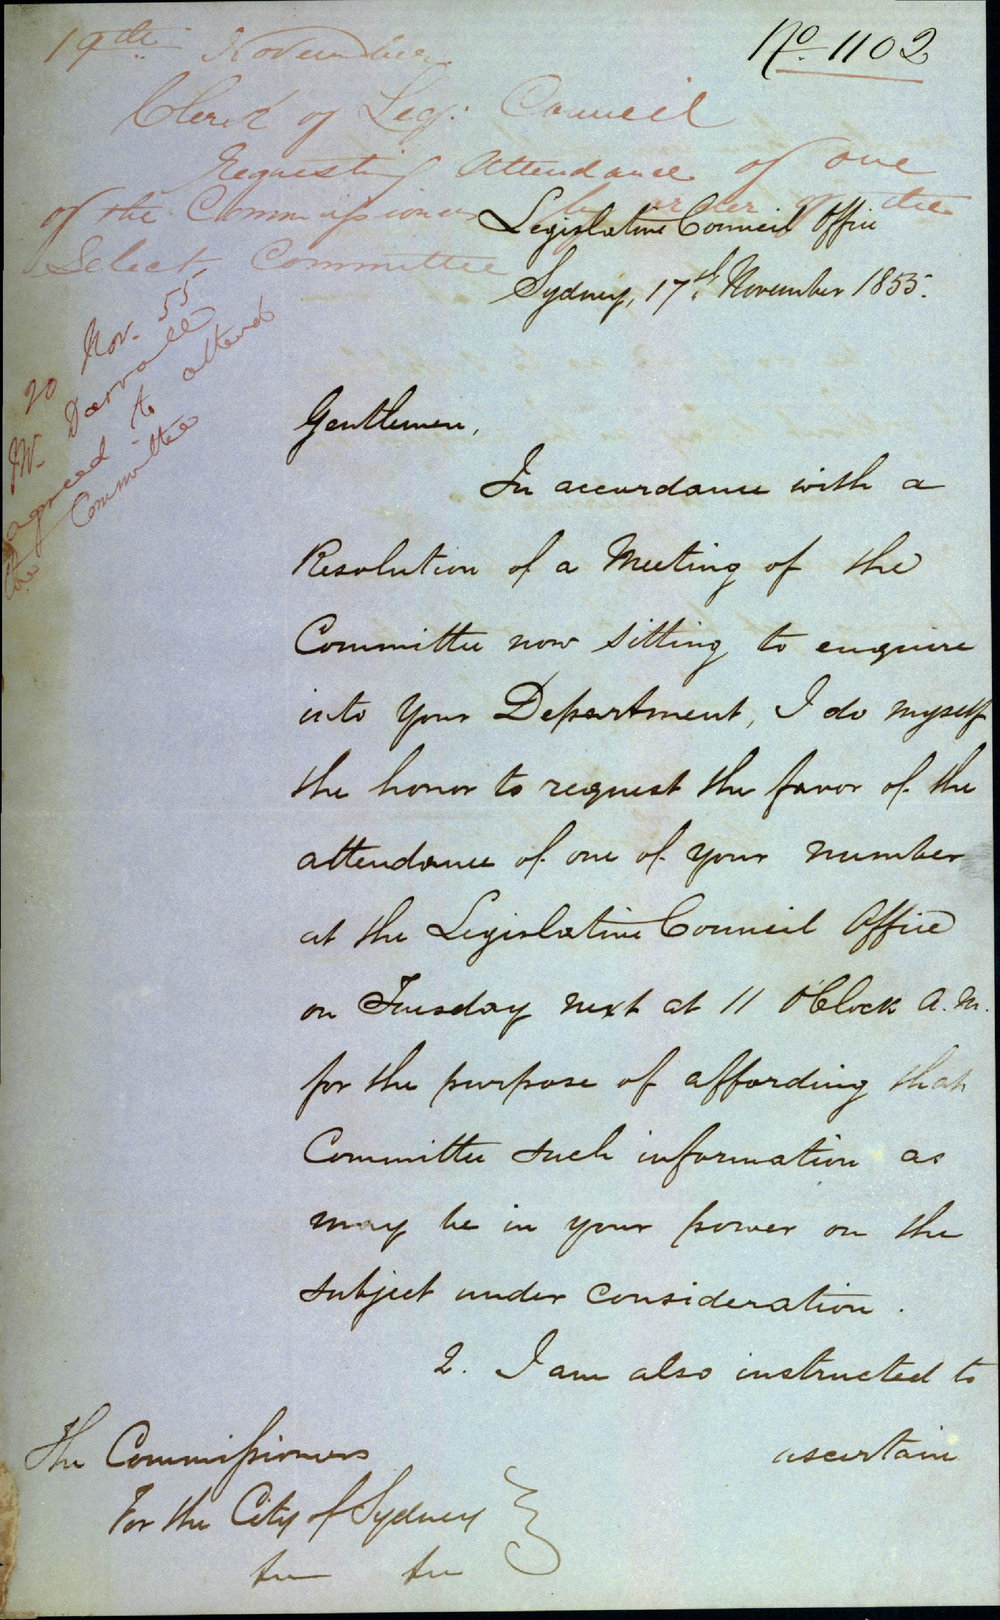 No. 1102
19th November
Clerk of Leg: Council
Requesting Attendance of one
of the Commissioners by order of the
Select Committee
20 Nov. 55
Mr. Darvall
agreed to attend
the Committee
Legislative Council Office
Sydney, 17th. November 1855.
Gentlemen,
In accordance with a
Resolution of a Meeting of the
Committee now sitting to enquire
into your Department, I do myself
the honor to request the favor of the
attendance of one of your number
at the Legislative Council Office
on Tuesday next at 11 O'Clock A.M.
for the purpose of affording that
Committee such information as
may be in your power on the
subject under consideration.
2. I am also instructed to
ascertain
The Commissioners
For the City of Sydney